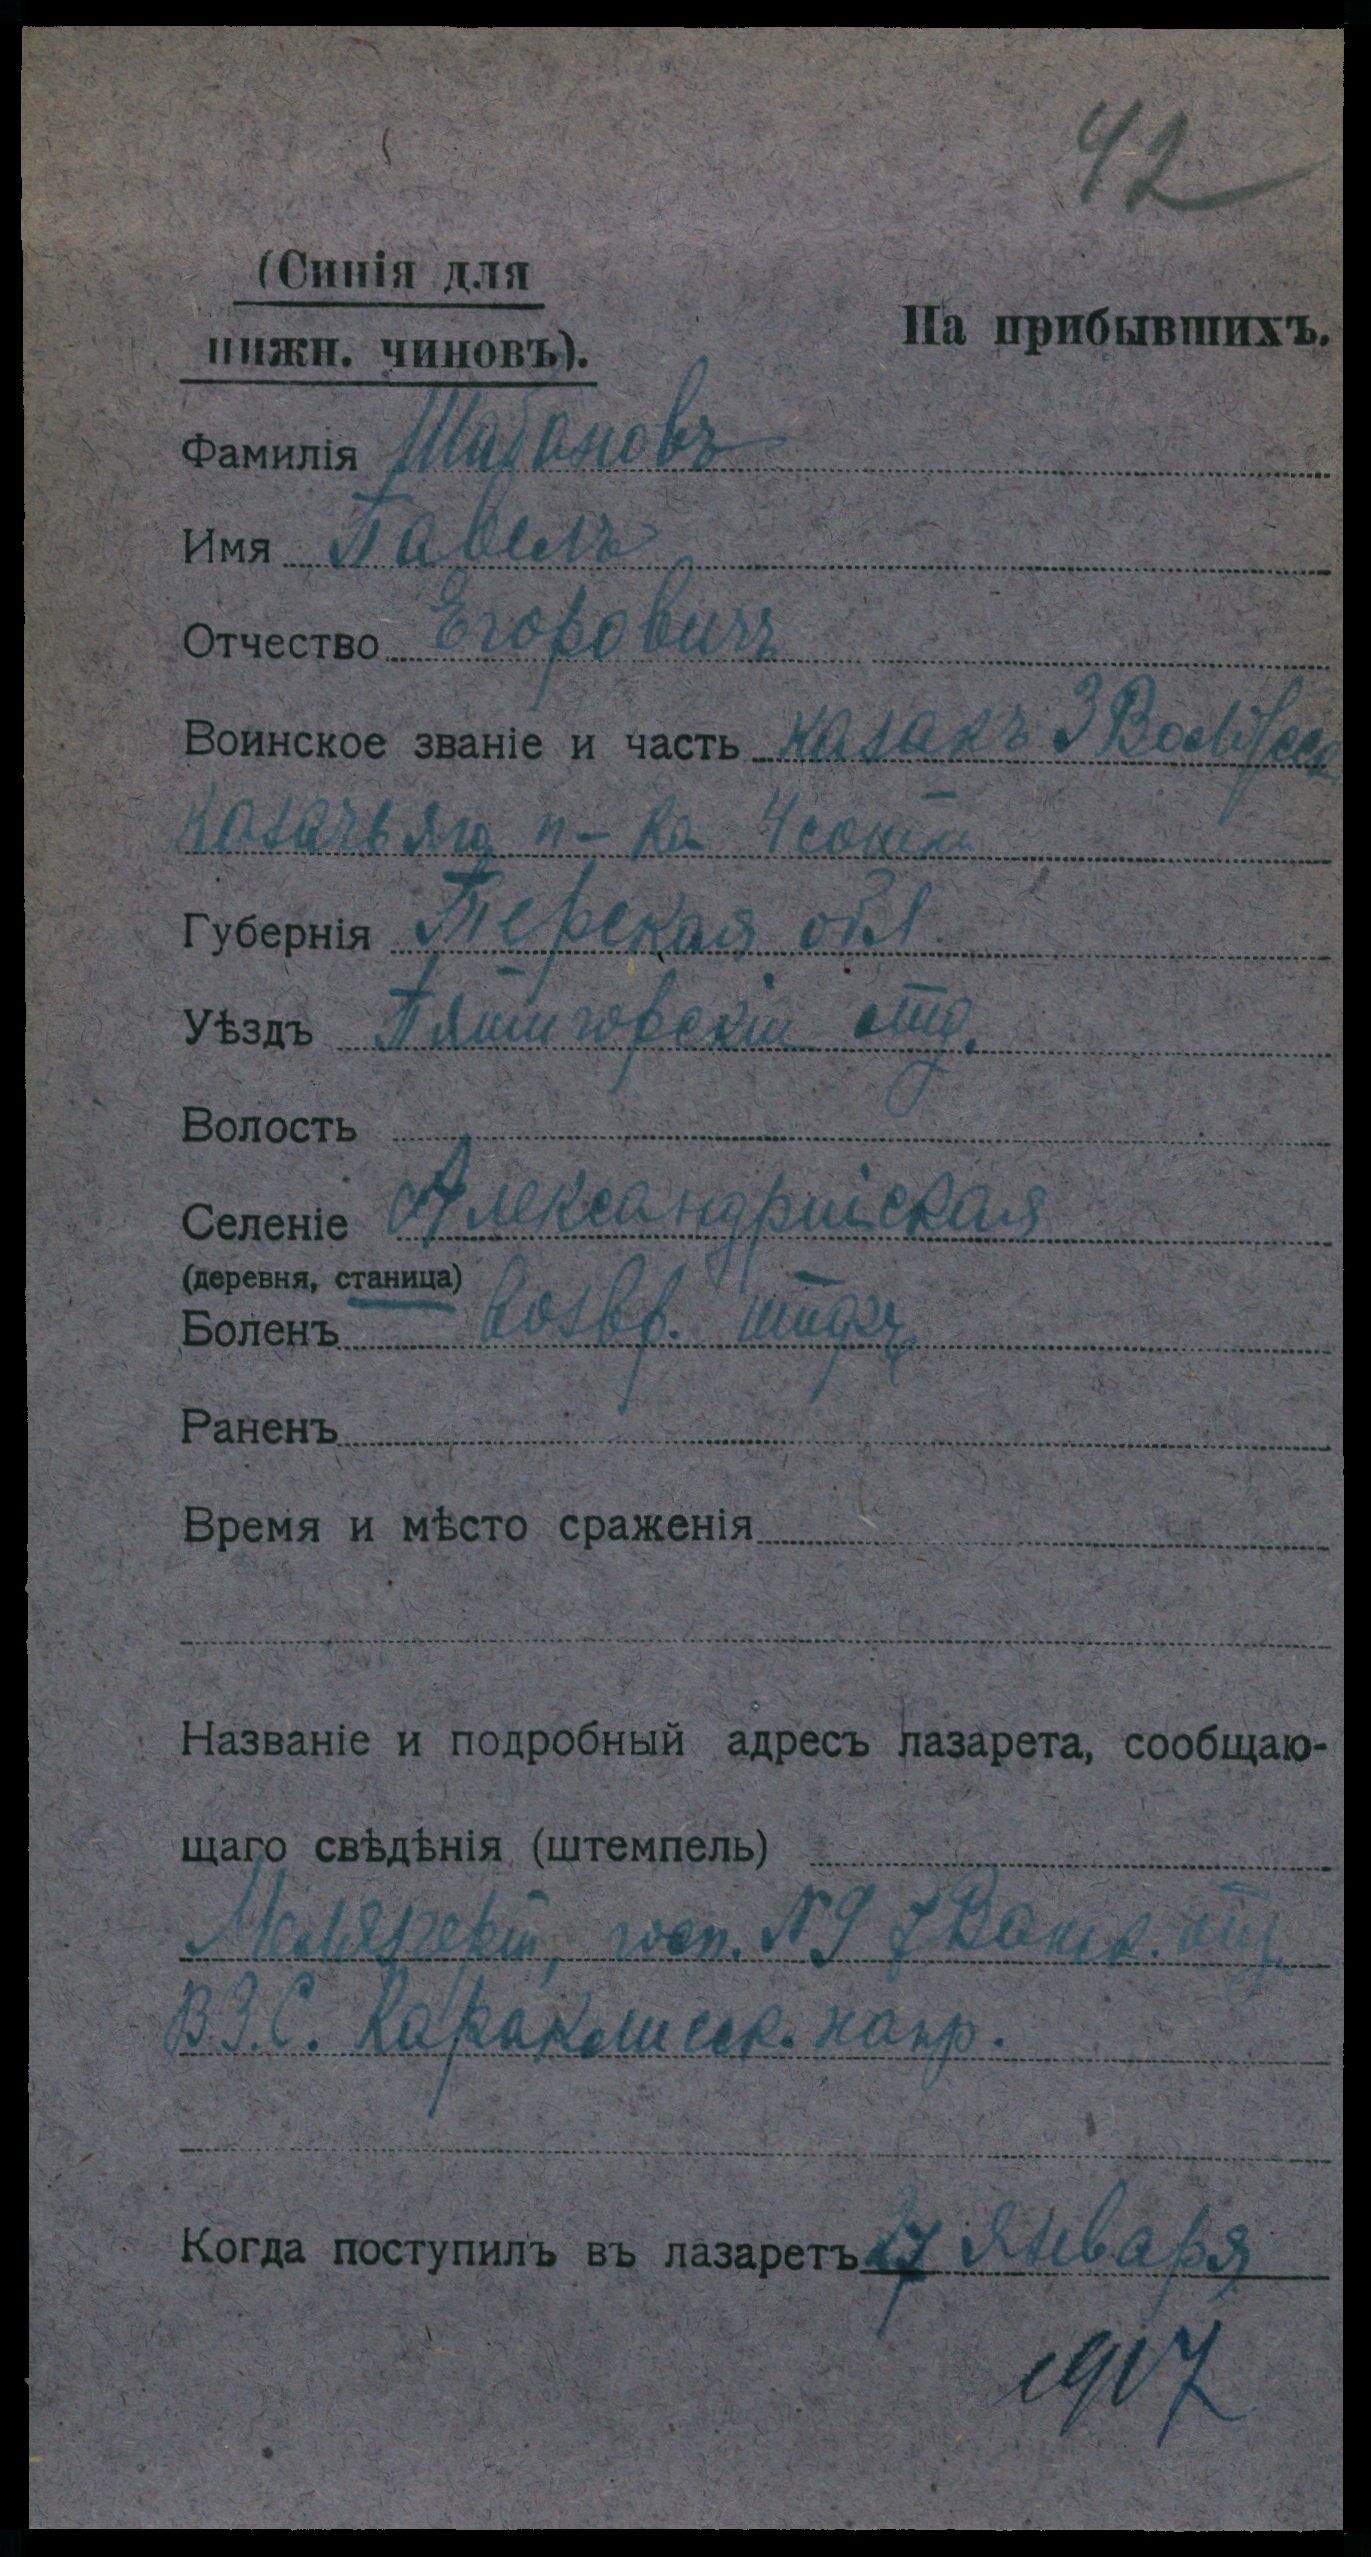 42
(Синія для
нижн. чиновъ).
На прибывшихъ.
Фамилія Шабановъ
Имя Павелъ
Отчество Егоровичъ
Воинское званіе и часть казакъ 3 Волгск
казачьяго п-ка 4 сотни
Губернія Терская обл.
Уѣздъ Пятигорскій отд.
Волость
Селеніе Александрійская
(деревня, станица)
Боленъ возвр. тифъ
Раненъ
Время и мѣсто сраженія
Названіе и подробный адресъ лазарета, сообщаю-
щаго свѣдѣнія (штемпель)
госп. №9 7 отд.
В.З.С. Каракилисск. напр.
Когда поступилъ въ лазаретъ 27 Января
1917